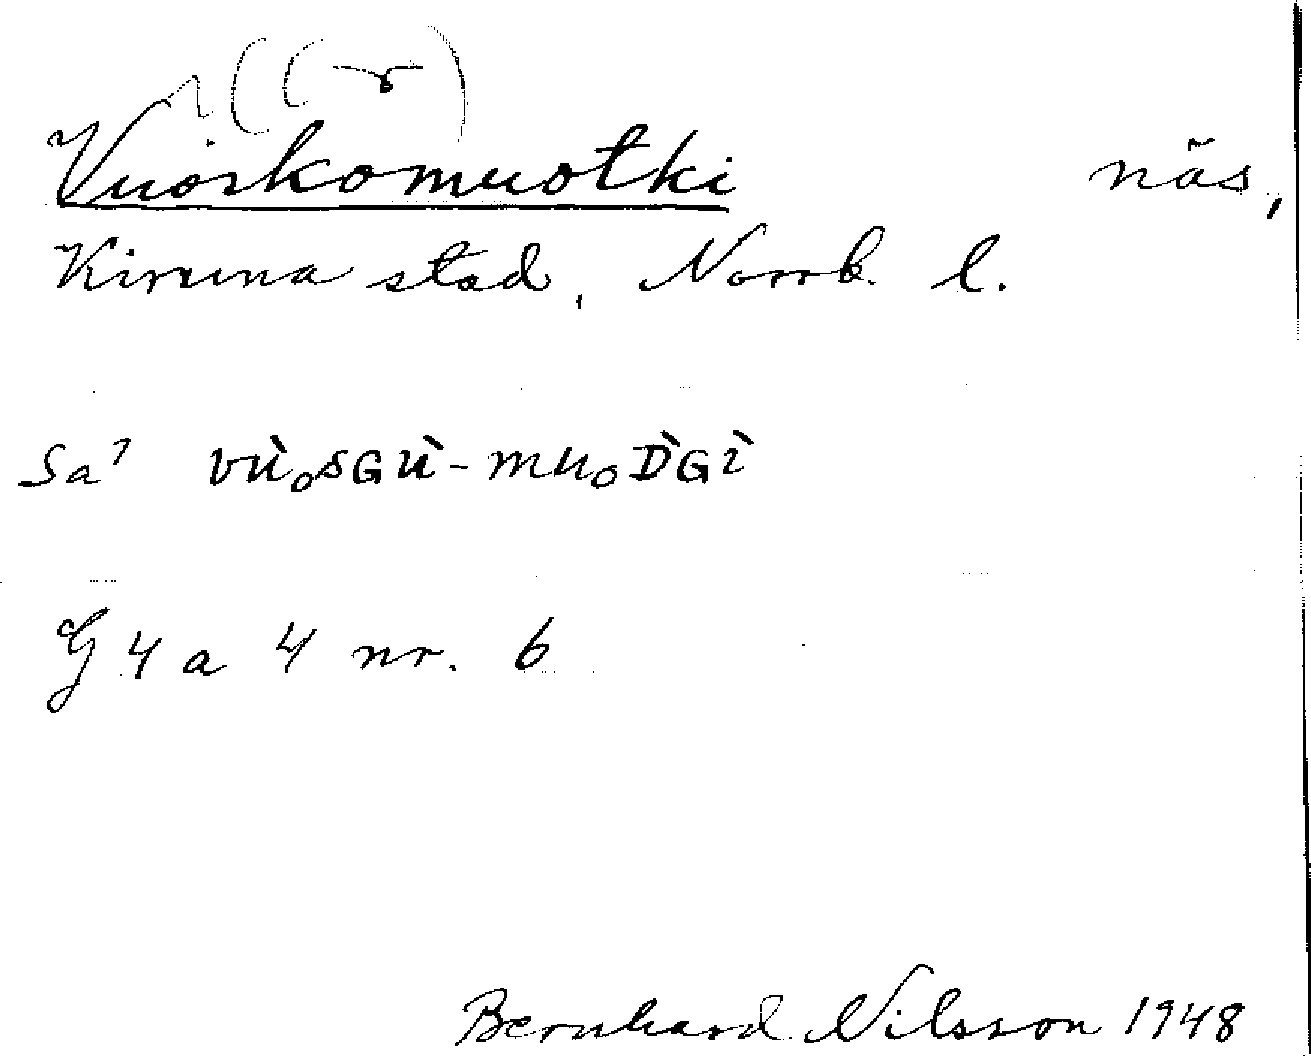 Vuoskomuotki näs,
Kiruna stad, Norrb. l.
Sa' vu̇̀ₒsGu̇̀-muₒD̀Gı̀
G 4 a 4 nr. 6
Bernhard Nilsson 1948